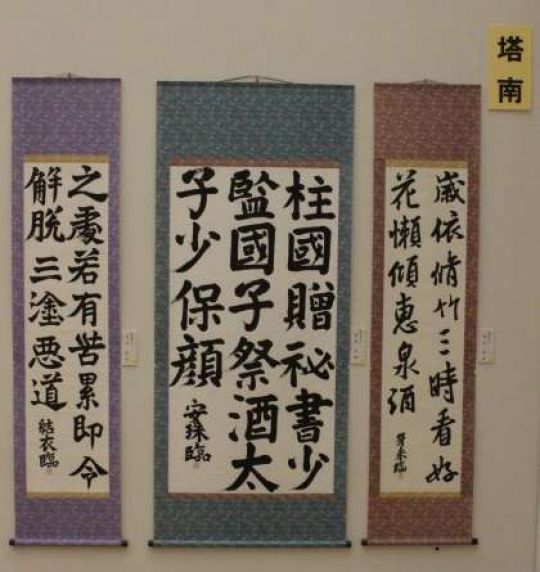 塔南
歳依脩竹三時看好
花懶傾恵泉酒
柱國贈祕書少
監國子祭酒太
子少保顔
安珠臨
之處若有苦累即令
解脱三塗悪道
結衣臨